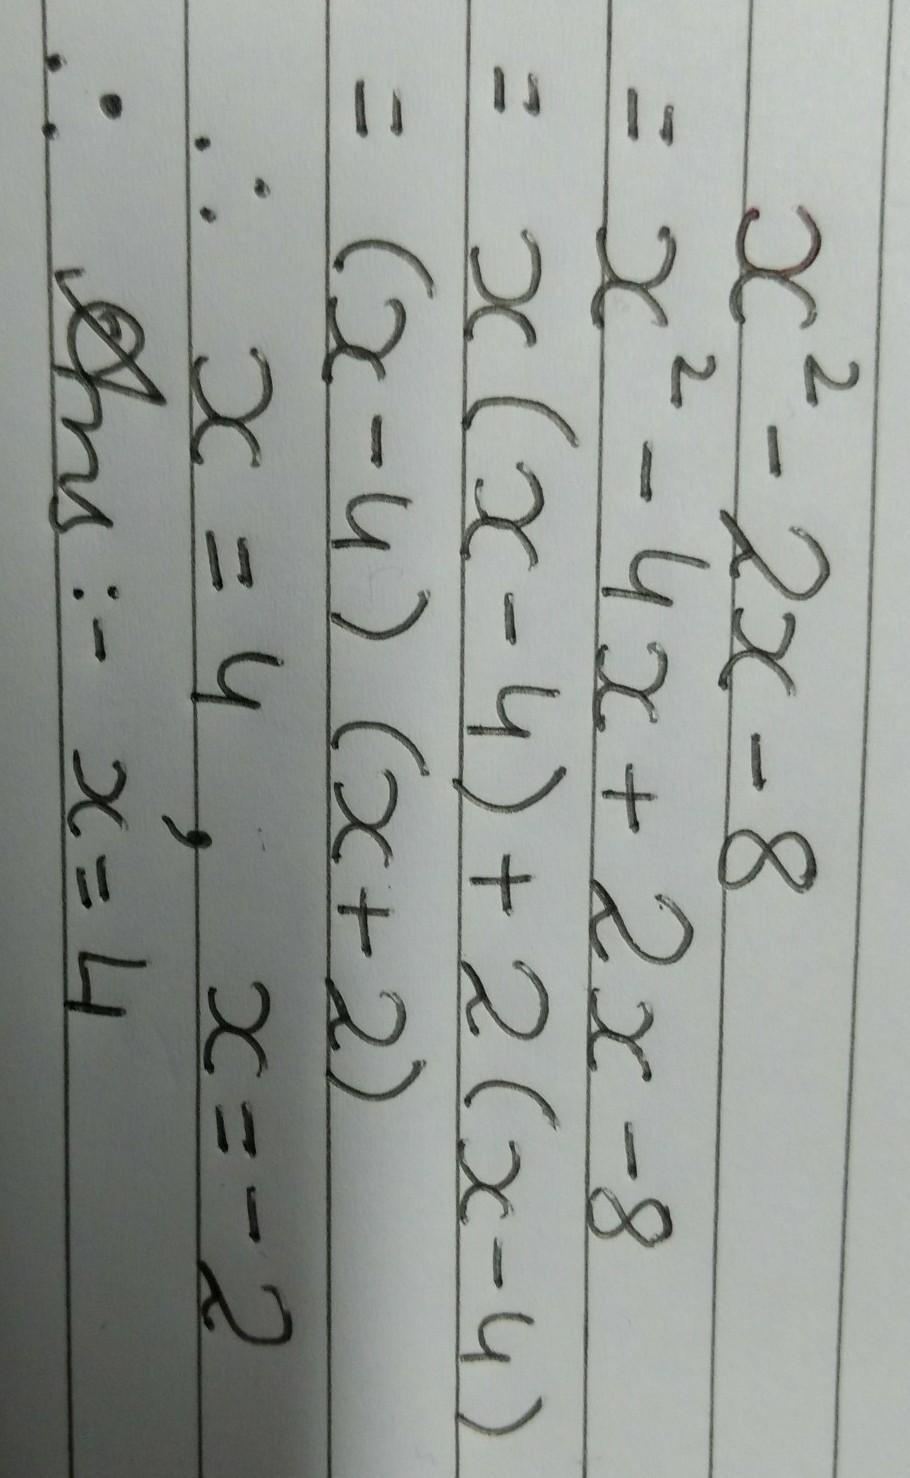 x² - 2x - 8
= x² - 4x + 2x - 8
= x (x - 4) + 2 (x - 4)
= (x - 4) (x + 2)
∴ x = 4 , x = - 2
∴ Ans :- x = 4